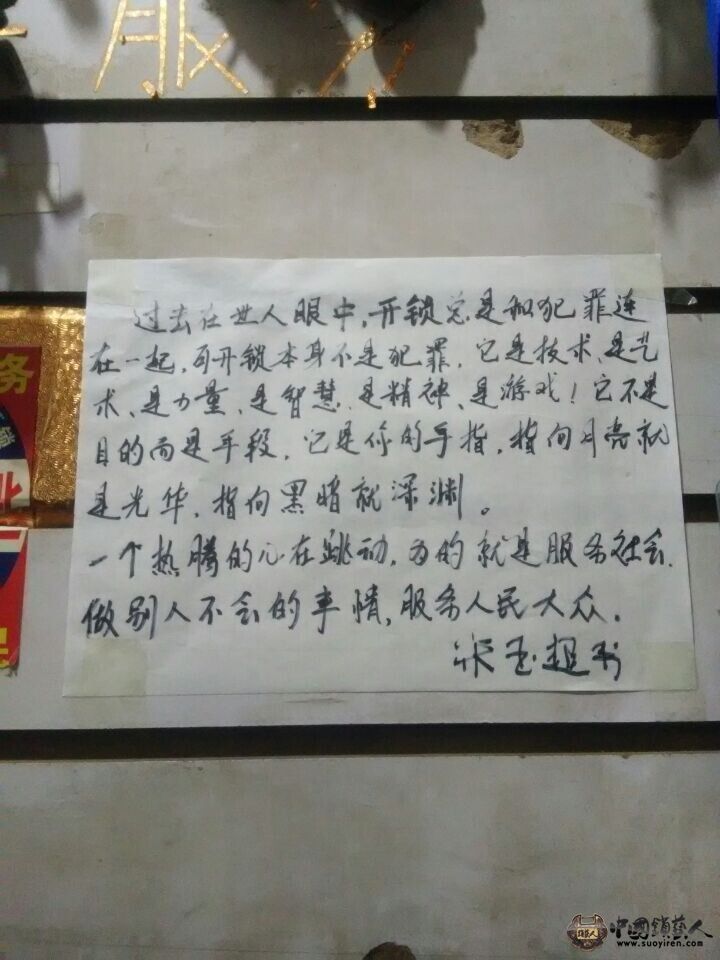 服务
过去在世人眼中,开锁总是和犯罪连
在一起,可开锁本身不是犯罪,它是技术、是艺
术、是力量、是智慧、是精神、是游戏!它不是
目的而是手段,它是你的手指,指向月亮就
是光华,指向黑暗就深渊。
一个热腾的心在跳动,为的就是服务社会,
做别人不会的事情,服务人民大众.
宋玉超书
务
业
民
中國鎖藝人
www.suoyiren.com